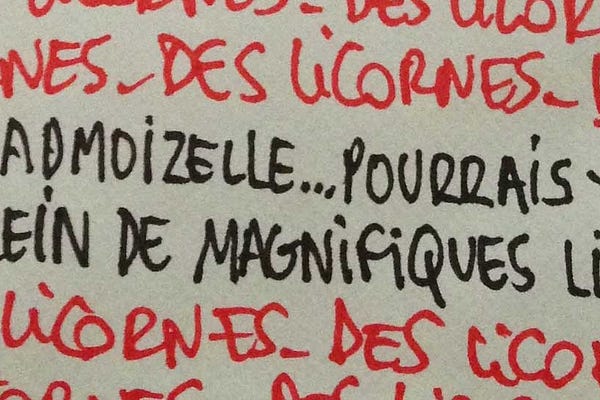 DES LICOR
NES_DES LICORNES_
ADMOIZELLE...POURRAIS-
EIN DE MAGNIFIQUES LI
LICORNES_DES LICO